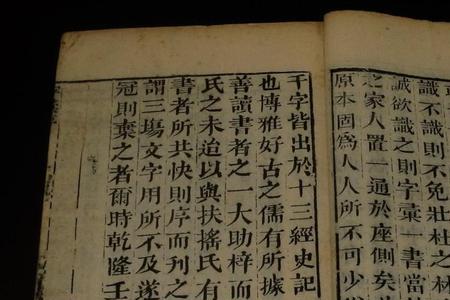 識不識則不免壯杜之林
誠欲識之則字彙一書當
之家人置一通於座側矣
原本固爲人人所不可少
千字皆出於十三經史記
也博雅好古之儒有所據
善讀書者之一大助梓而
氏之未迨以與扶搖氏有
書者所共快則序而刊之
謂三塲文字用所不及遂
冠則棄之者爾時乾隆壬